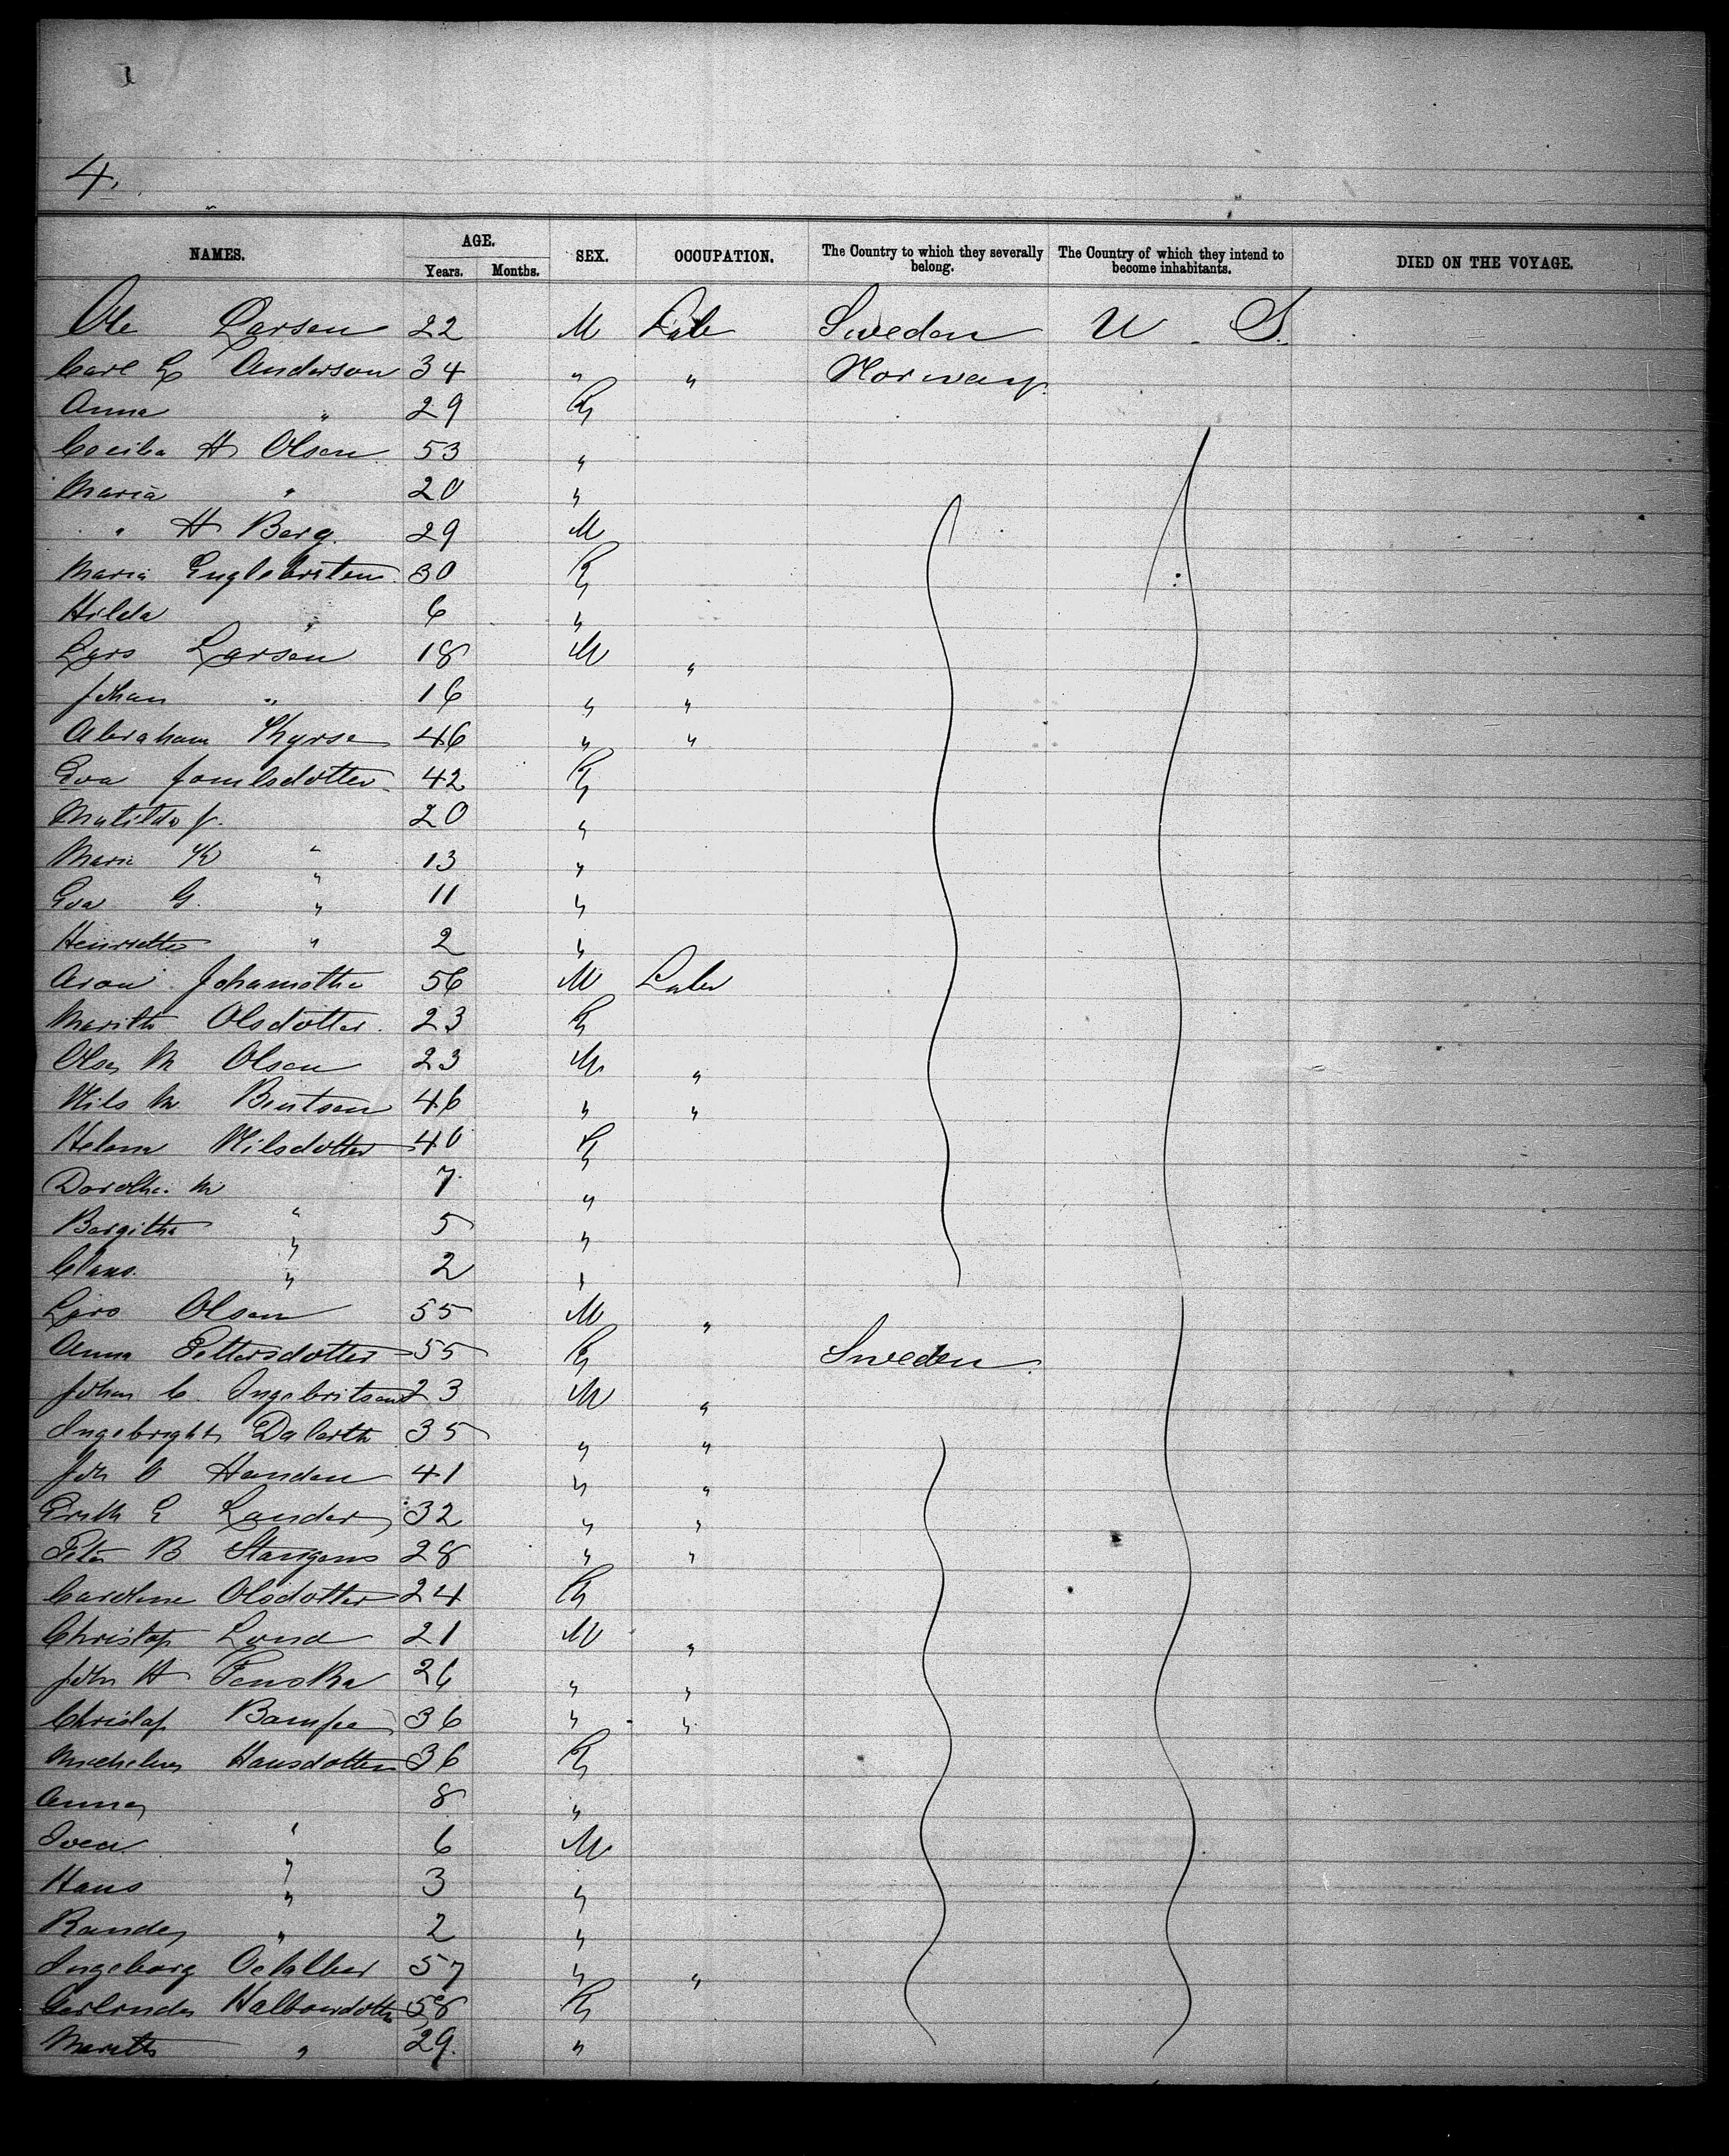 4.
NAMES. AGE. Years. Months. SEX. OCCUPATION. The Country to which they severally belong. The Country of which they intend to become inhabitants. DIED ON THE VOYAGE.
Ole Larsen 22 M Lab Sweden U. S.
Carl L Anderson 34 " " Norway.
Anna " 29 F
Cecilia H Olsen 53 "
Maria " 20 "
" H Berg. 29 M
Maria Englebriten 30 F
Hilda " 6 "
Lars Larsen 18 M "
Johan " 16 " "
Abraham Thyrse 46 " "
Eva 42 F
Matilda J. 20 "
Marie " 13 "
Eva G. " 11 "
Henrietta " 2 "
Aron 56 M Labr
Marith Olsdotter. 23 F
Olsen M Olsen 23 M "
Nils M Bentsen 46 " "
Helena Nilsdotter 40 F
Dorothe. M " 7 "
Bergitha " 5 "
Claus. " 2 "
Lars Olsen 55 M "
Anna Pettersdotter 55 F Sweden.
Johan C. Ingebritsen 23 M "
Ingebright 35 " "
Joh O Handen 41 " "
E Lander 32 " "
Peter B Stangens 28 " "
Caroline Olsdotter 24 F
Christof Lund 21 M "
John H Fenska 26 " "
Christof 36 " "
Hansdotter 36 F
Anna " 8 "
Sven " 6 M
Hans " 3 "
Rande " 2 "
Ingeborg 57 " "
58 F
Marith " 29. "